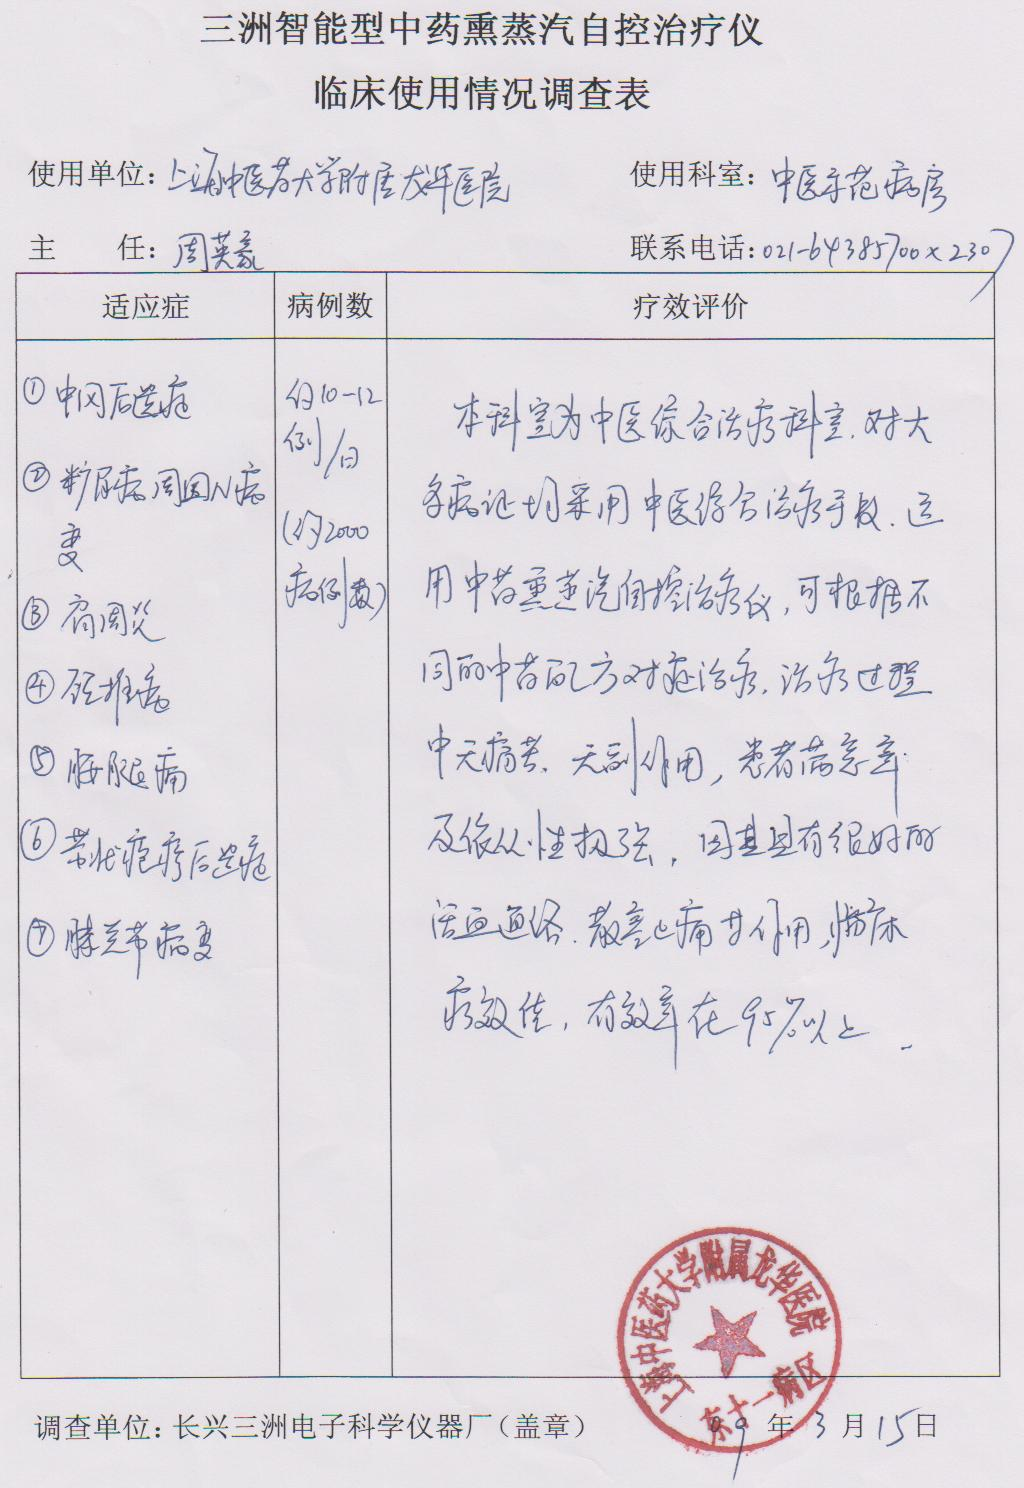 三洲智能型中药熏蒸汽自控治疗仪
临床使用情况调查表
使用单位：上海中医药大学附属龙华医院 使用科室：中医示范病房
主 任：周英豪 联系电话：021-64385700x2307
适应症 病例数 疗效评价
①中风后遗症
②糖尿病周围N病
变
③肩周炎
④颈椎病
⑤腰腿痛
⑥带状疱疹后遗症
⑦膝关节病变
约10-12
例/日
(约2000
病例数)
本科室为中医综合治疗科室，对大
多病证均采用中医综合治疗手段，运
用中药熏蒸汽自控治疗仪，可根据不
同的中药配方对症治疗，治疗过程
中无痛苦、无副作用，患者满意率
及依从性极强，因其具有很好的
活血通络、散寒止痛等作用，临床
疗效佳，有效率在95%以上.
上海中医药大学附属龙华医院
东十一病区
调查单位：长兴三洲电子科学仪器厂（盖章） 09年3月15日